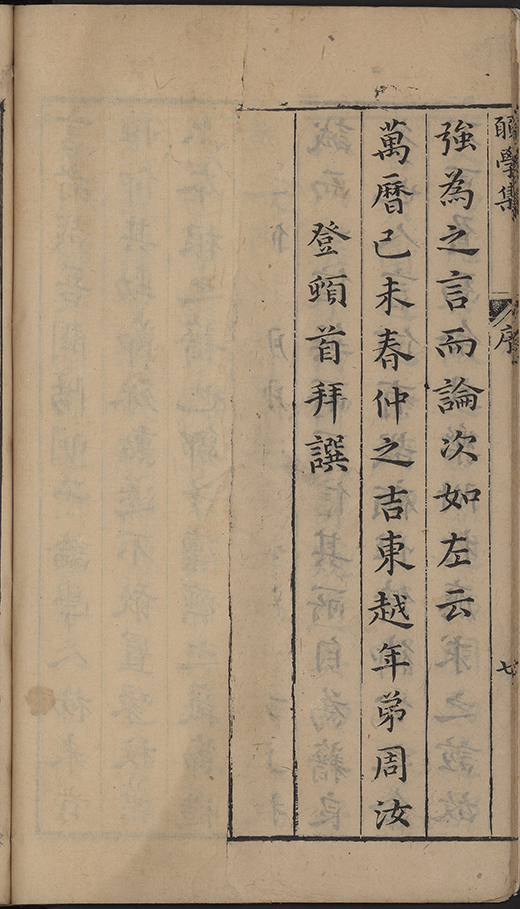 願學集
序
七
強為之言而論次如左云
萬曆己未春仲之吉東越年弟周汝
登頓首拜譔